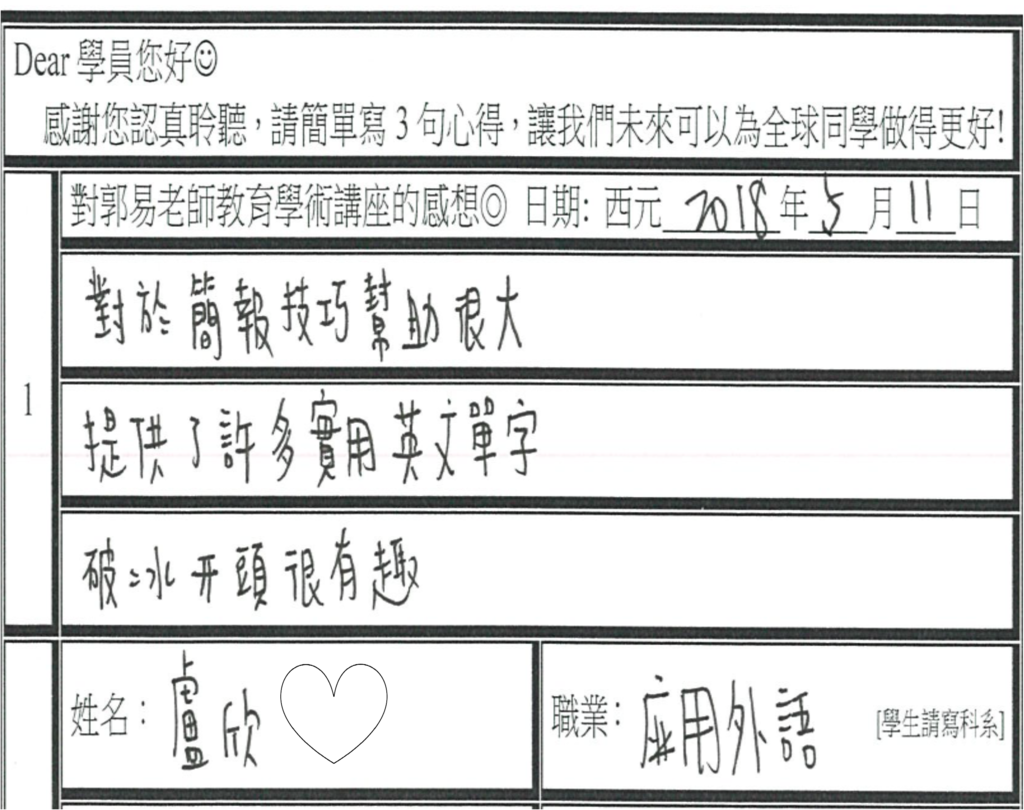 Dear 學員您好☺
感謝您認真聆聽，請簡單寫 3 句心得，讓我們未來可以為全球同學做得更好!
1
對郭易老師教育學術講座的感想◎ 日期: 西元 2018 年 5 月 11 日
對於簡報技巧幫助很大
提供了許多實用英文單字
破冰开頭很有趣
姓名： 盧欣
職業： 应用外語 [學生請寫科系]